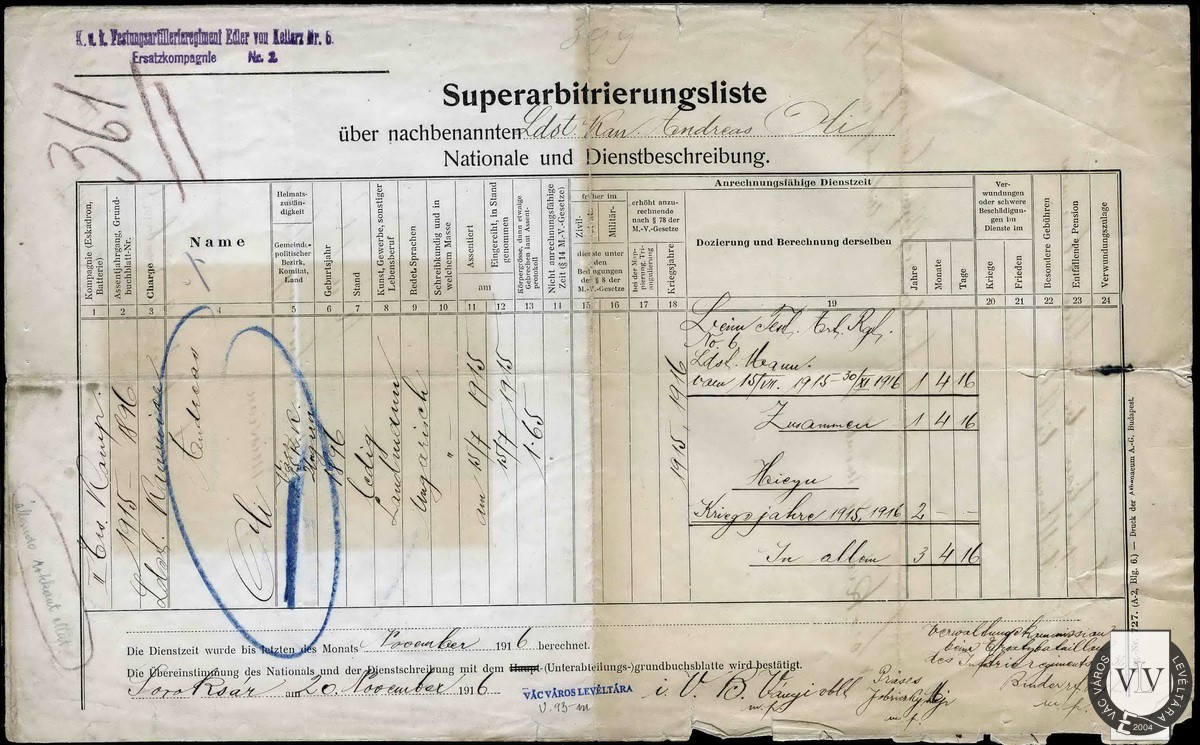 K. u. k. Festungsartillerieregiment Edler von Kollarz Nr. 6.
Ersatzkompagnie Nr. 2
399
361
Superarbitrierungsliste
über nachbenannten Ldst. Kan. Andreas
Nationale und Dienstbeschreibung.
Kompagnie (Eskadron, Batterie)
Assentjahrgang, Grundbuchblatt-Nr.
Charge
Name
Heimatszuständigkeit
Gemeinde, politischer Bezirk, Komitat, Land
Geburtsjahr
Stand
Kunst, Gewerbe, sonstiger Lebensberuf
Redet Sprachen
Schreibkundig und in welchem Masse
Assentiert
Eingereiht, in Stand genommen
am
Körpergrösse, dann etwaige Gebrechen laut Assentprotokoll
Nicht anrechnungsfähige Zeit (§ 14 M.-V.-Gesetze)
Anrechnungsfähige Dienstzeit
früher im
Zivil-
Militär-
dienste unter den Bedingungen des § 8 der M.-V.-Gesetze
erhöht anzurechnende nach § 78 der M.-V.-Gesetze
bei der Mappierung, Triangulierung
Kriegsjahre
Dozierung und Berechnung derselben
Jahre
Monate
Tage
Verwundungen oder schwere Beschädigungen im Dienste im
Kriege
Frieden
Besondere Gebühren
Entfallende Pension
Verwundungszulage
1 2 3 4 5 6 7 8 9 10 11 12 13 14 15 16 17 18 19 20 21 22 23 24
1915 – 896
Ldst.
Andreas
1896
Ledig
Landmann
Ungarisch
"
am 15/7 1915
15/7 1915
1·65
1915, 1916
Beim Fest. Art. Rgt.
No. 6
Ldst. Mann.
vom 15/VII. 1915–30/XI 1916 1 4 16
Zusammen 1 4 16
Hiezu
Kriegsjahre 1915, 1916 2 – –
In allem 3 4 16
Die Dienstzeit wurde bis letzten des Monats November 1916 berechnet.
Die Übereinstimmung des Nationals und der Dienstschreibung mit dem Haupt-(Unterabteilungs-)grundbuchsblatte wird bestätigt.
Soroksar am 20. November 1916
VÁC VÁROS LEVÉLTÁRA
i. V. B.
m. p.
Präses
m. p.
Verwaltungskommission
beim Ersatzbataillon
des Infrieregiments
m. p.
(A-2, Blg. 6.) — Druck der Athenaeum A.-G. Budapest.
VÁC VÁROS LEVÉLTÁRA
VLV
2004